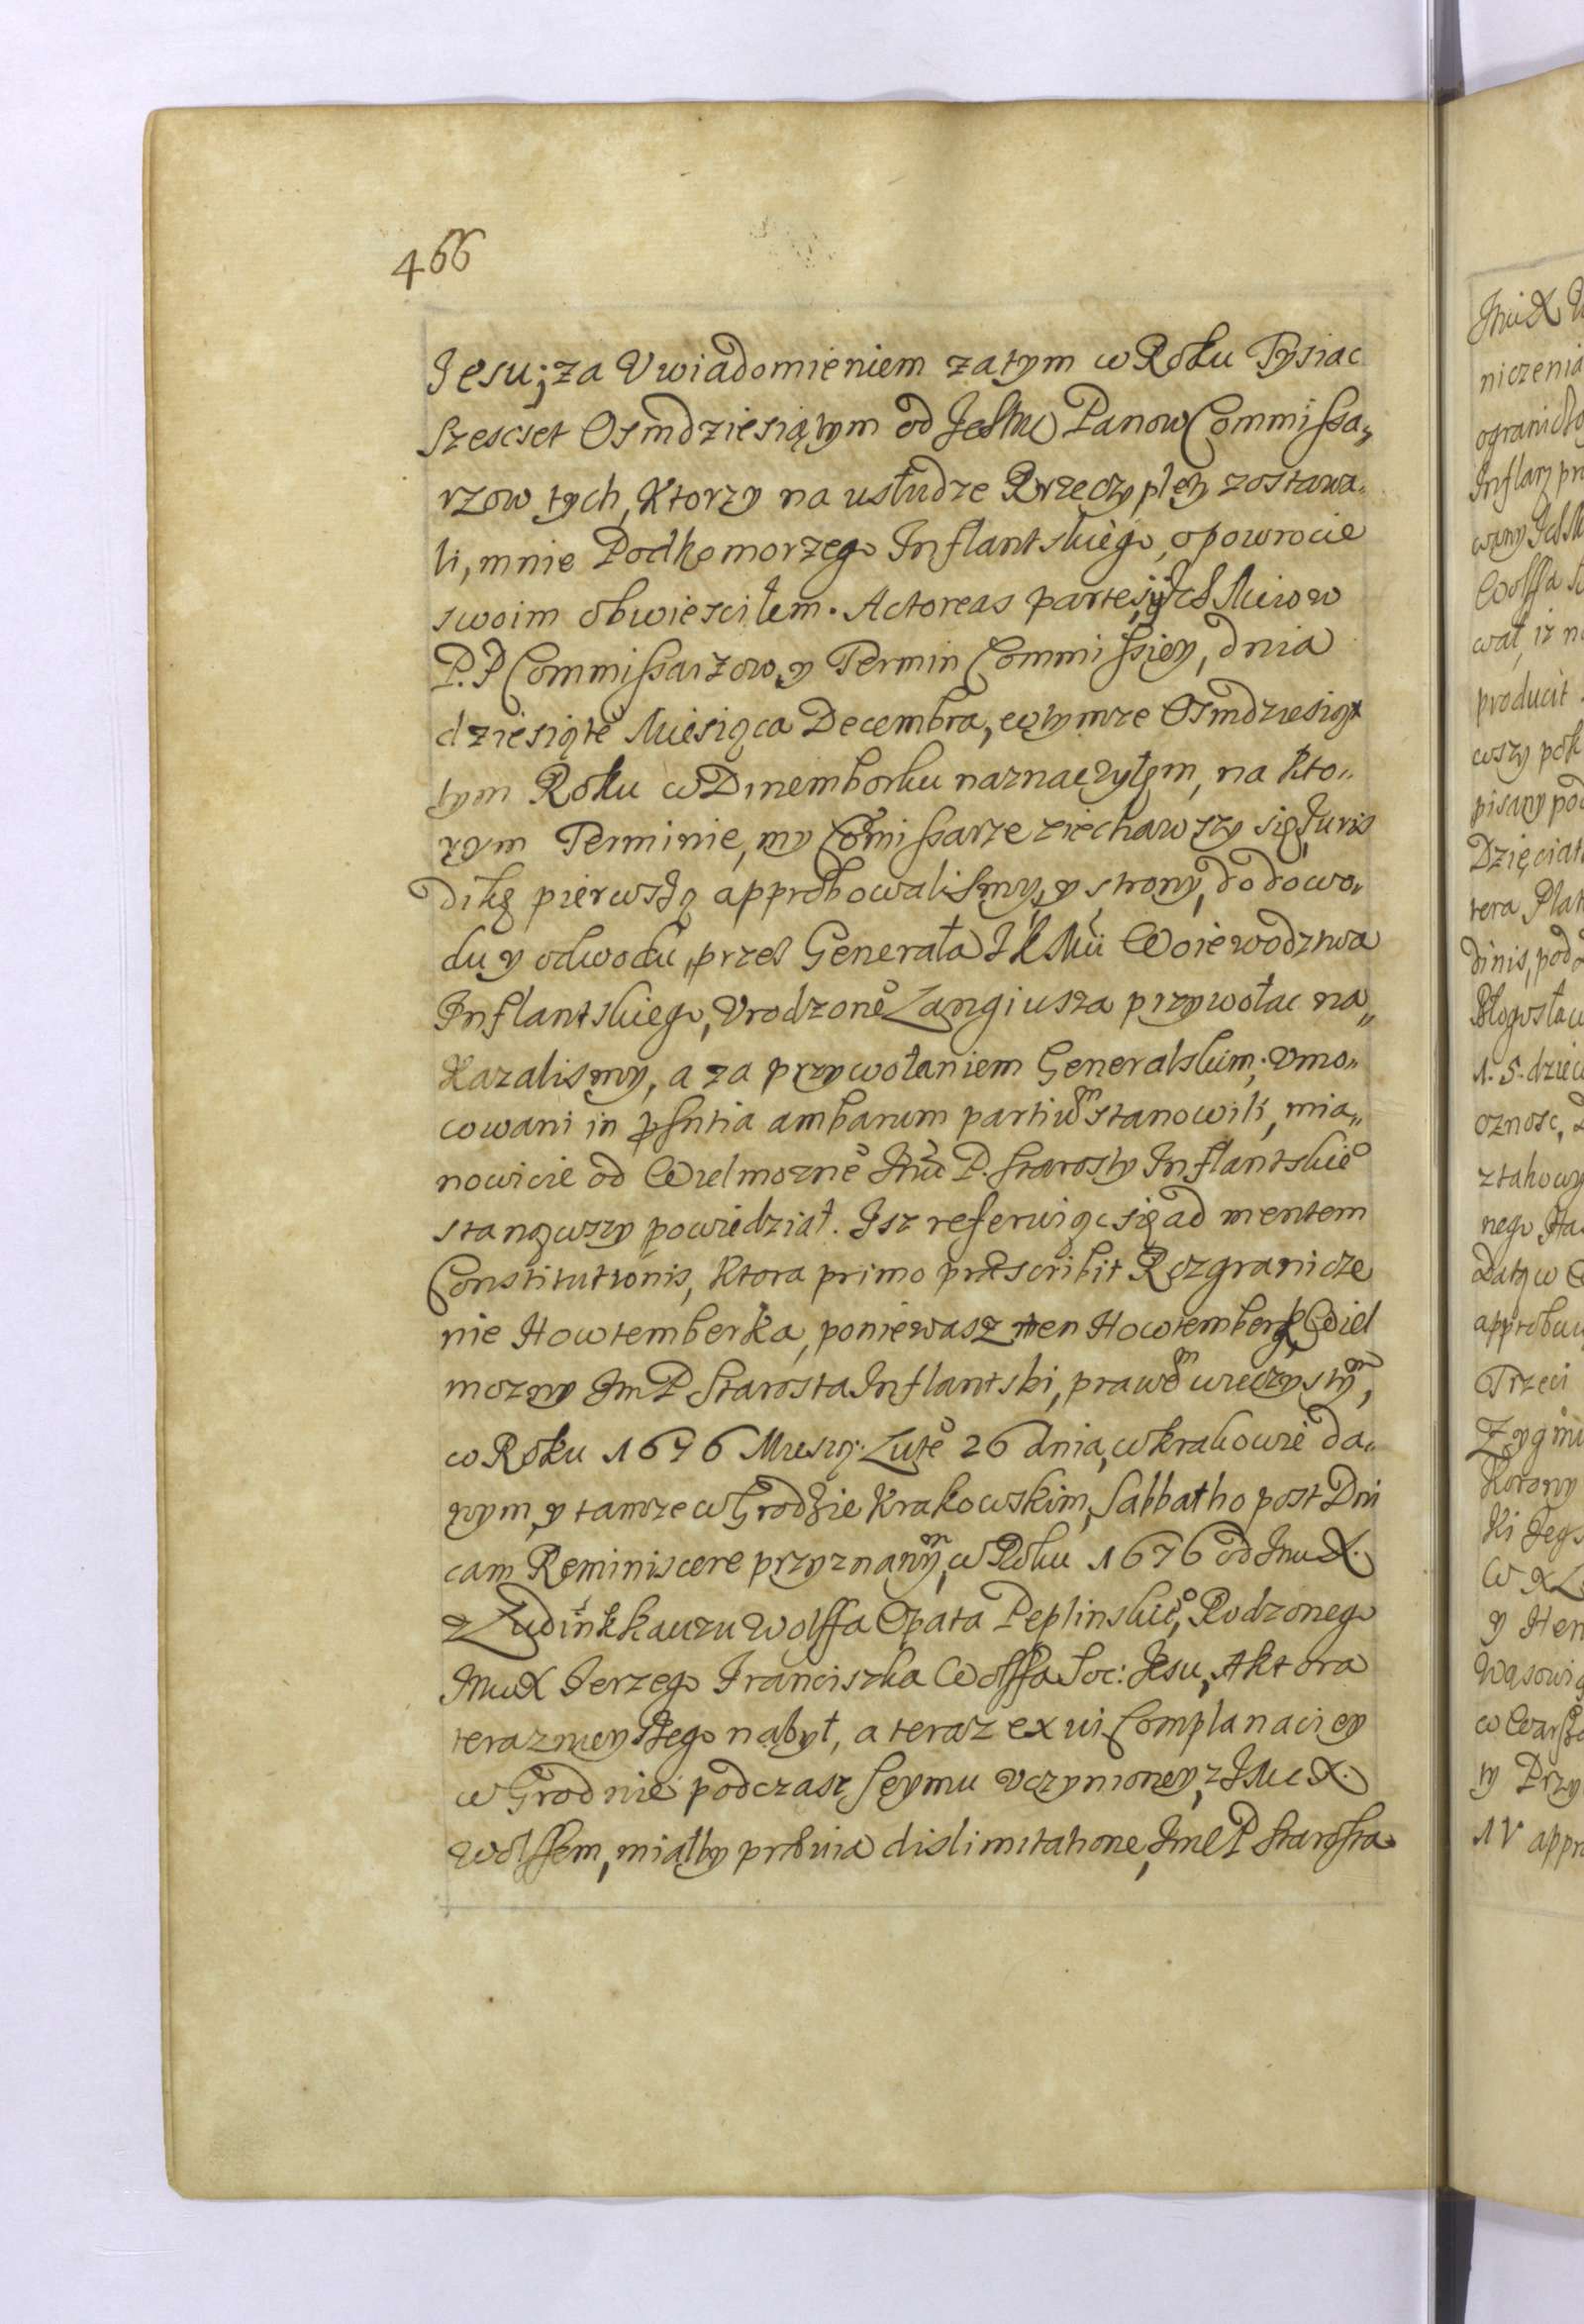 466
Jesu; za Vwiadomieniem zatym w Roku Tysiac
szescset Osmdziesiątym od Jchmć Panow Commissa„
rzow tych, Ktorzy na usłudze Rrzeczyplęy zostawa„
li, mnie Podkomorzego Inflantskiego, o powrocie
swoim obwiescilem. Actoreas partes, y Jch Mciow
P.P Commissarzow, y Termin Commissiey, dnia
dziesiąte Miesiąca Decembra, w tymze Osmdziesiąt
tym Roku w Dinemborku naznaczyłęm, na Kto„
rym Terminie, my Comissarze ziechawszy się Juris
dikę pierwszą approbowalismy, y strony, do dowo„
du y odwodu, przes Generała J K Mci Woiewodztwa
Inflantskiego, Vrodzone Langiusza przywołac na„
Kazalismy, a za przywołaniem Generalskim; Vmo„
cowani in psntia ambarum partium stanowili, mia„
nowicie od Wielmozne Jmci P. Starosty Inflantskie
stanąwszy powiedział. Jsz referuiąc się ad mentem
Constitutionis, Ktora primo præscribit Rozgranicze
nie Howtemberka, poniewasz ten Howtemberk Wiel
mozny Jm P Starosta Inflantski, prawem wieczystym,
w Roku 1676 Miesią: Lute 26 dnia, w krakowie da„
nym, y tamze w Grodzie Krakowskim, Sabbatho post Dni
cam Reminiscere przyznanym, w Roku 1676 od Jmci X.
z Ludinkkauzu Wolffa Opata Peplinskie, Rodzonego
Jmci X Jerzego Franciszka Wolffa Soc: Jesu, Aktora
teraznieyszego nabył, a teraz ex vi Complanaciey
w Grodnie podczasz Seymu vczynioney, z JMci X.
Wolffem, miałby prævia dislimitatione, Jmć P Starosta
JmciX
niczenia
Inflan
producit
wszy pok
Dzięciat
dinis, pod
1. 5.
oznosc,
nego
approbu
Trzeci
Korony
y Hen
ty Przy
1V appr